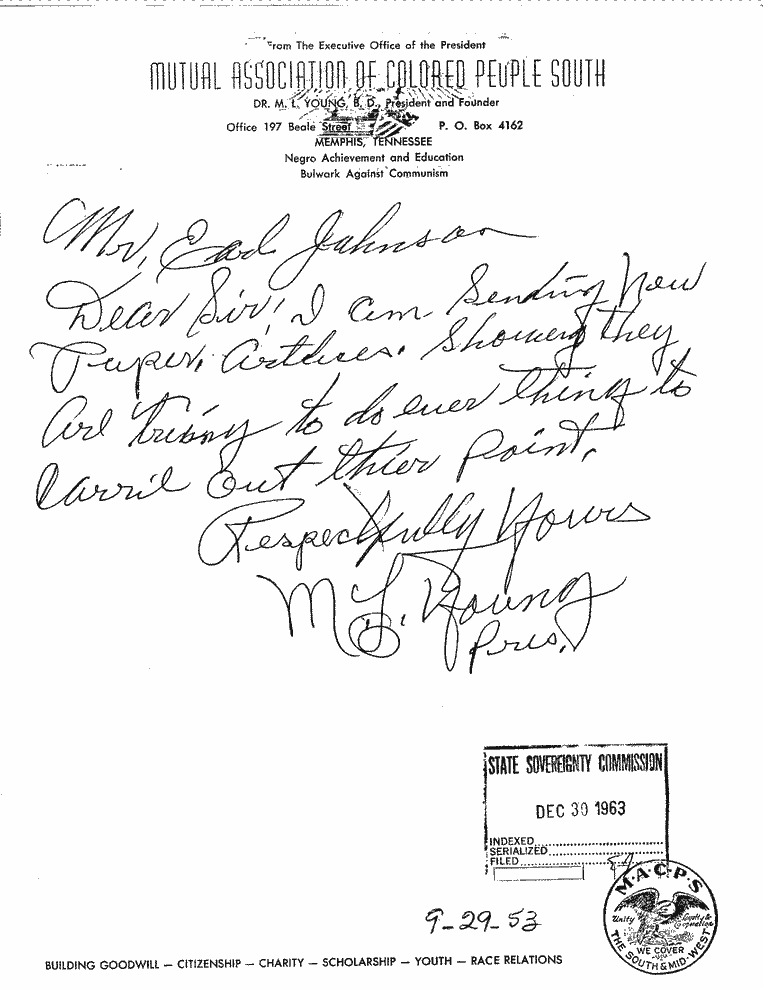 From The Executive Office of the President
MUTUAL ASSOCIATION OF COLORED PEOPLE SOUTH
DR. M. L. YOUNG, B. D., President and Founder
Office 197 Beale Street P. O. Box 4162
MEMPHIS, TENNESSEE
Negro Achievement and Education
Bulwark Against Communism
Mr, Earl Johnson
Dear Sir! I am Sending New
Paper, Artices. Showing they
Are triing to do ever thing to
Carril Out thier Point,
Respectfully Yours
M. L. Young
Pres.
STATE SOVEREIGNTY COMMISSION
DEC 30 1963
INDEXED
SERIALIZED
FILED
M·A·C·P·S
Unity Loyalty & Cooperation
WE COVER
THE SOUTH & MID-WEST
9-29-53
BUILDING GOODWILL — CITIZENSHIP — CHARITY — SCHOLARSHIP — YOUTH — RACE RELATIONS